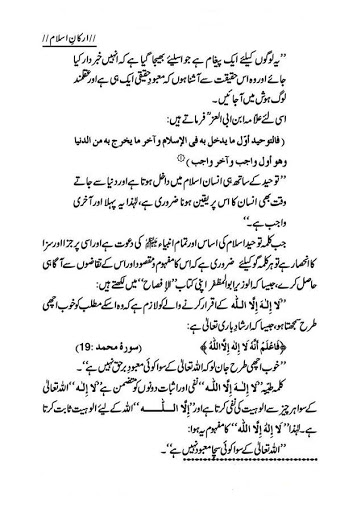 // ارکانِ اسلام //
’’یہ لوگوں کیلئے ایک پیغام ہے جو اسلیئے بھیجا گیا ہے کہ انہیں خبردار کیا
جائے اور وہ اس حقیقت سے آشنا ہوں کہ معبودِ حقیقی ایک ہی ہے اور عقلمند
لوگ ہوش میں آ جائیں۔
اسی لئے علامہ ابن ابی العزؒ فرماتے ہیں:
(فالتوحید أوّل ما یدخل به فی الإسلام و آخر ما یخرج به من الدنیا
وهو أول واجب و آخر واجب) ①
’’توحید کے ساتھ ہی انسان اسلام میں داخل ہوتا ہے اور دنیا سے جاتے
وقت بھی انسان کا اس پر یقین ہونا ضروری ہے، لہٰذا یہ پہلا اور آخری
واجب ہے۔‘‘
جب کلمہ توحید اسلام کی اساس اور تمام انبیاء ﷺ کی دعوت ہے اور اسی پر جزا اور سزا
کا انحصار ہے تو ہر کلمہ گو کیلئے ضروری ہے کہ اس کا مفہوم و مقصود اور اس کے تقاضوں سے آگاہی
حاصل کرے، جیسا کہ الوزیر ابو المظفر اپنی کتاب ’’الإفصاح‘‘ میں لکھتے ہیں:
’’لا إلٰهَ إلّا اللّٰه کے اقرار کرنے والے کو لازم ہے کہ وہ اسکے مطلب کو خوب اچھی
طرح سمجھتا ہو، جیسا کہ ارشادِ باری تعالیٰ ہے:
﴿فَاعْلَمْ أَنَّهٗ لَا إِلٰهَ إِلَّا اللّٰهُ﴾ (سورۃ محمد :19)
’’خوب اچھی طرح جان لو کہ اللہ تعالیٰ کے سوا کوئی معبودِ برحق نہیں ہے‘‘۔
کلمہ طیّبہ ’’لَا إِلٰهَ إِلَّا اللّٰه‘‘ نفی اور اثبات دونوں کو متضمن ہے ’’لا إلٰهَ‘‘ اللہ تعالیٰ
کے سوا ہر چیز سے الوہیت کی نفی کرتا ہے اور ’’إِلَّا اللّٰه‘‘ اللہ کے لیئے الوہیت ثابت کرتا
ہے۔ لہٰذا ’’لَا إِلٰهَ إِلَّا اللّٰهُ‘‘ کا مفہوم یہ ہوا:
’’اللہ تعالیٰ کے سوا کوئی سچا معبود نہیں ہے‘‘۔